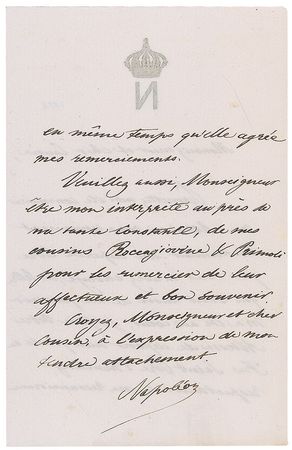 N
en même temps qu'elle agrée
mes remerciements.
Veuillez aussi, Monseigneur
être mon interprète au près de
ma tante Constante, de mes
cousins Roccagiovine & Primoli
pour les remercier de leur
affectueux et bon souvenir
Croyez, Monseigneur et cher
Cousin, à l'expression de mon
tendre attachement.
Napoléon